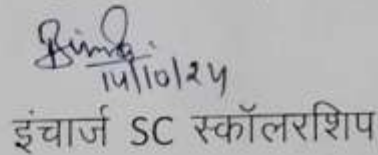 14/10/24
इंचार्ज SC स्कॉलरशिप